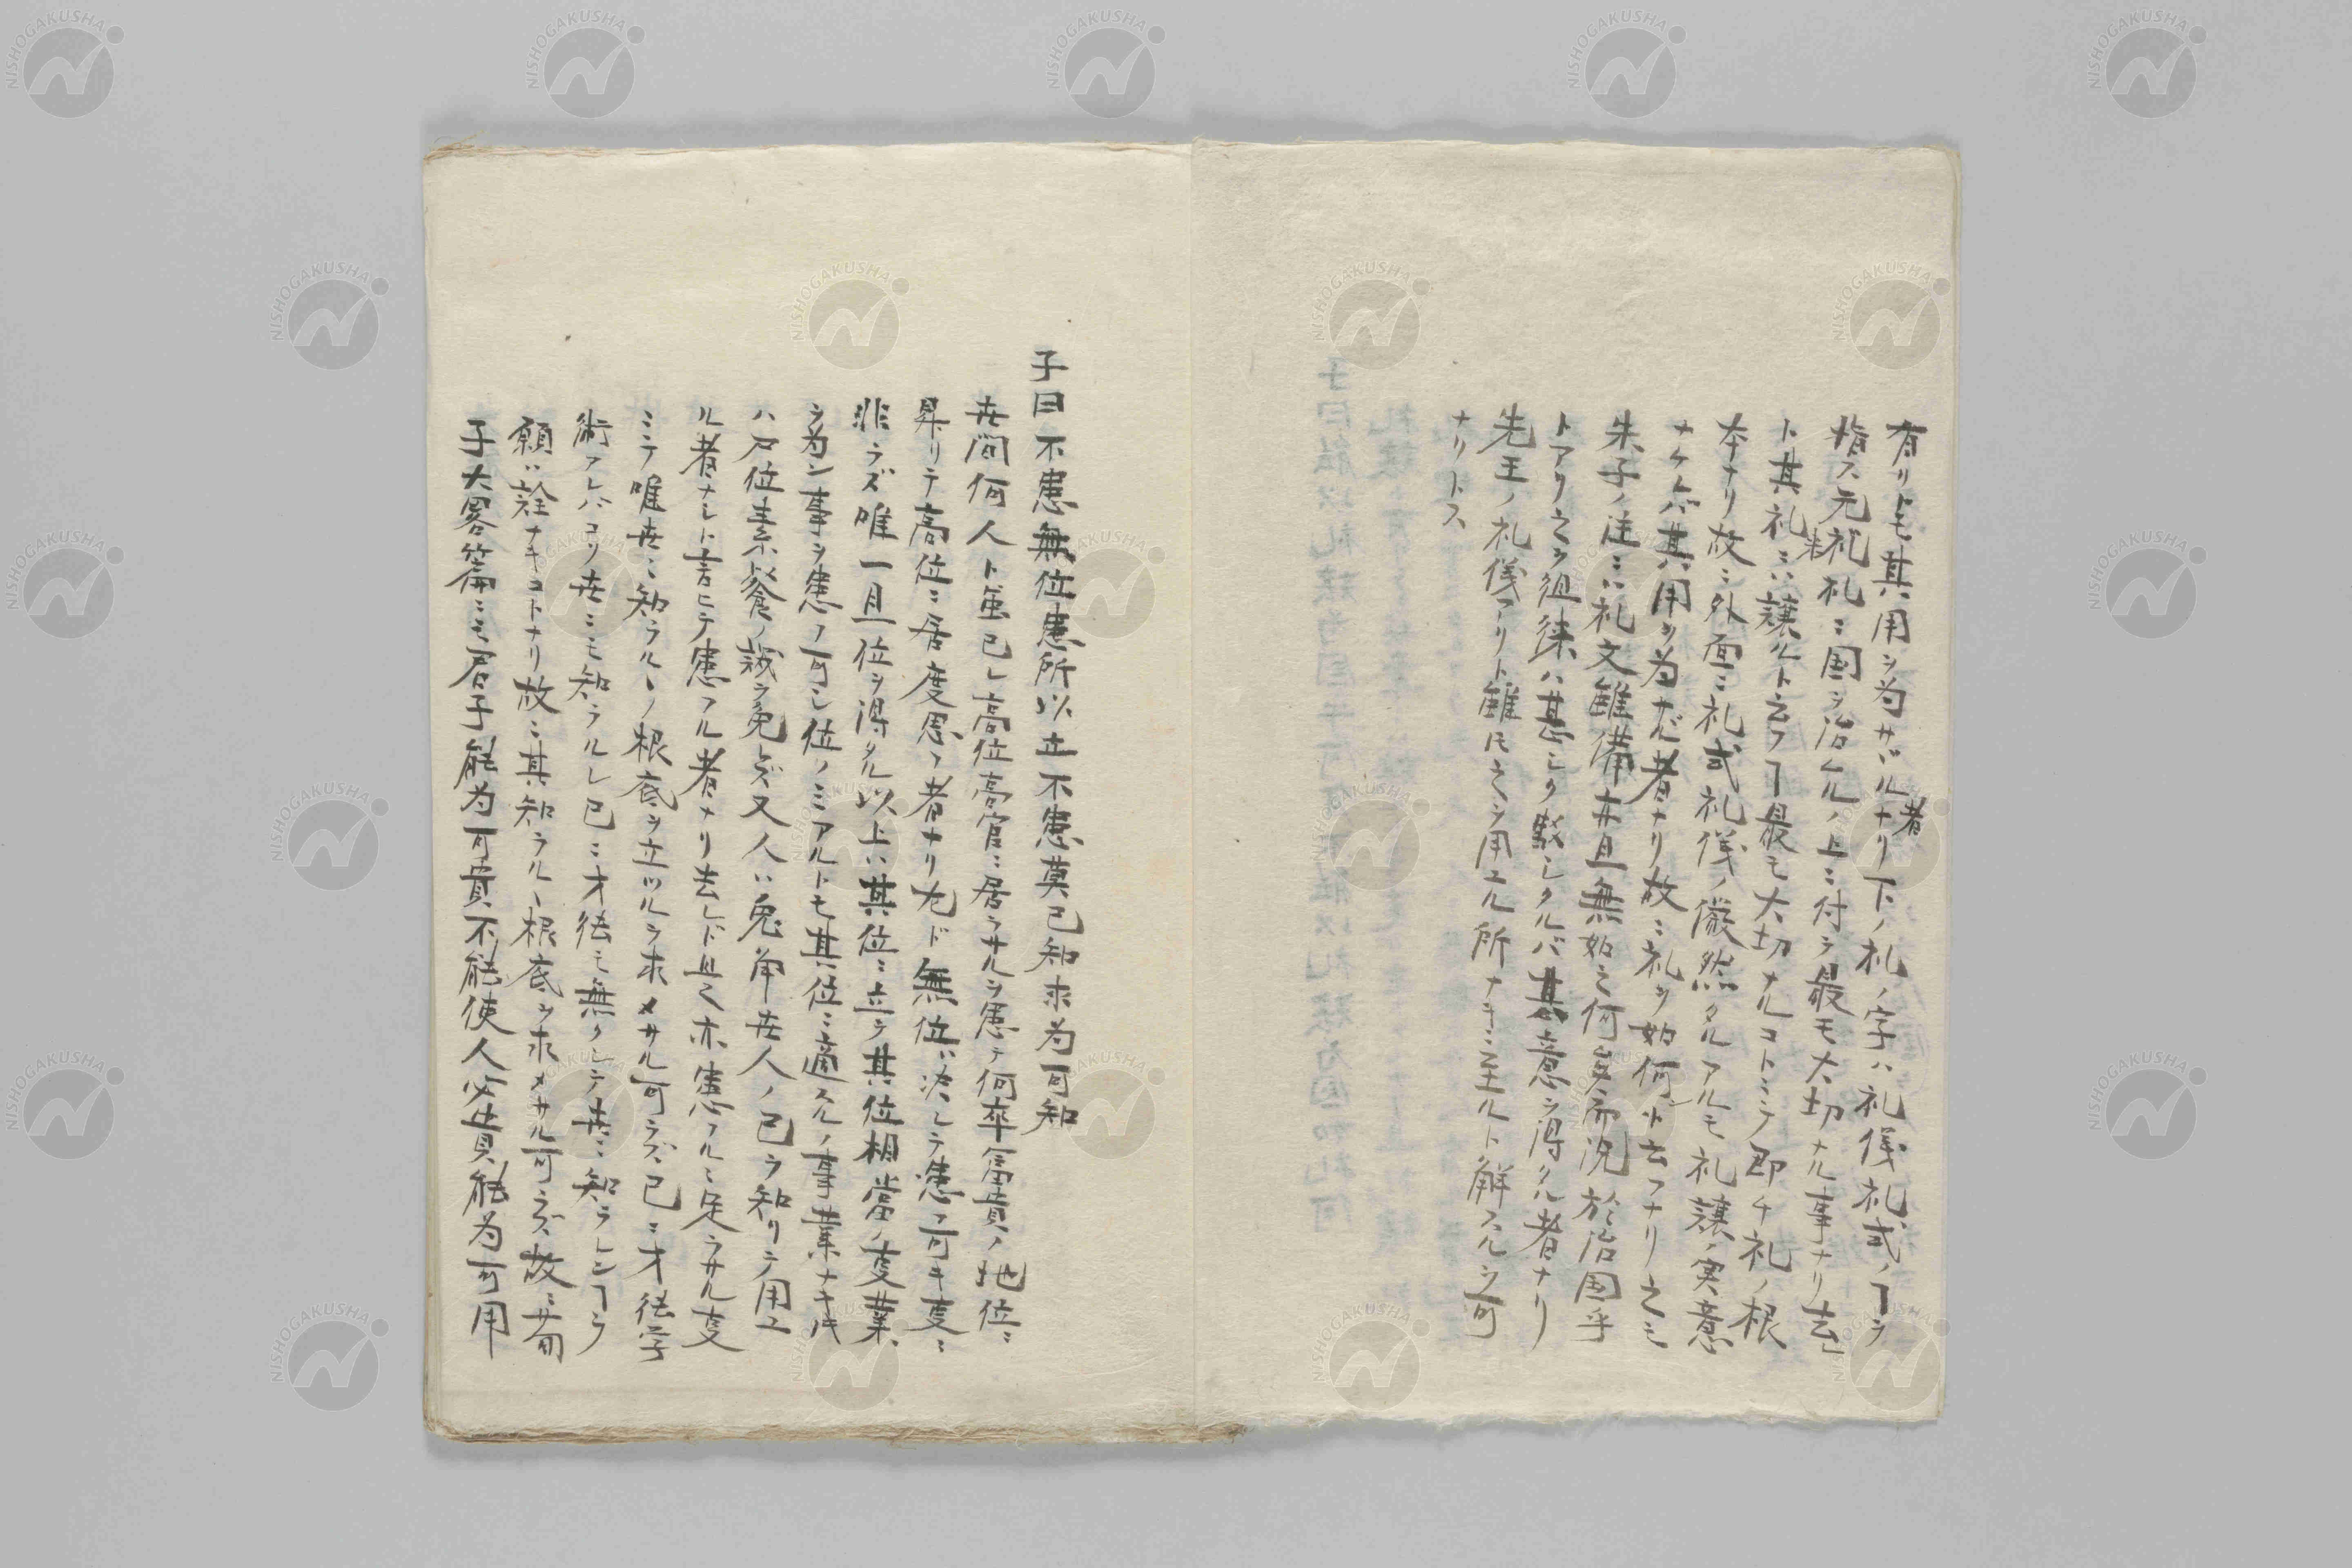 有リトモ其用ヲ為サヾルナリ者下ノ礼ノ字ハ礼儀礼式ノヿヲ
指ス元来礼ハ国ヲ治ムルノ上ニ付テ最モ大切ナル事ナリ去レ
ト其礼ニハ譲ルト云フヿ最モ大切ナルコトニテ即チ礼ノ根
本ナリ故ニ外面ニ礼式礼儀ノ儼然タルアルモ礼譲ノ実意
ナケレバ其用ヲ為サヾル者ナリ故ニ礼ヲ如何ント云フナリ之ヲ
朱子ノ注ニハ礼文雖備亦且無如之何矣而況於治国乎
トアリ之ヲ徂徠ハ甚シク駁シタルバ其意ヲ得タル者ナリ
先王ノ礼儀アリト雖ドモ之ヲ用ユル所ナキニ至ルト解スル可
ナリトス
子曰不患無位患所以立不患莫己知求为可知
世間何人ト雖已レ高位高官ニ居ラサルヲ患テ何卒富貴ノ地位ニ
昇リテ高位ニ居度思フ者ナリ尤ド無位ハ決シテ患フ可キ事ニ
非ラズ唯一旦位ヲ得タル以上ハ其位ニ立テ其位相當ノ事業
ヲ为ン事ヲ患フ可シ位ノミアルトモ其位ニ適スルノ事業ナキ時
ハ尸位素餐ノ誠ヲ免レズ又人ハ兎角世人ノ已ヲ知リテ用ユ
ル者ナシト言ヒテ患フル者ナリ去レド是亦患フルニ足ラサル事
ニテ唯世ニ知ラルヽノ根底ヲ立ツルヲ求メサル可ラズ已ニ才徳学
術アレバコソ世ニモ知ラルレ已ニ才徳モ無クシテ世ニ知ラレンヿヲ
願ハ詮ナキコトナリ故ニ其知ラルヽ根底ヲ求メサル可ラズ故ニ荀
子大畧篇ニモ君子能为可貴不能使人必貴能为可用